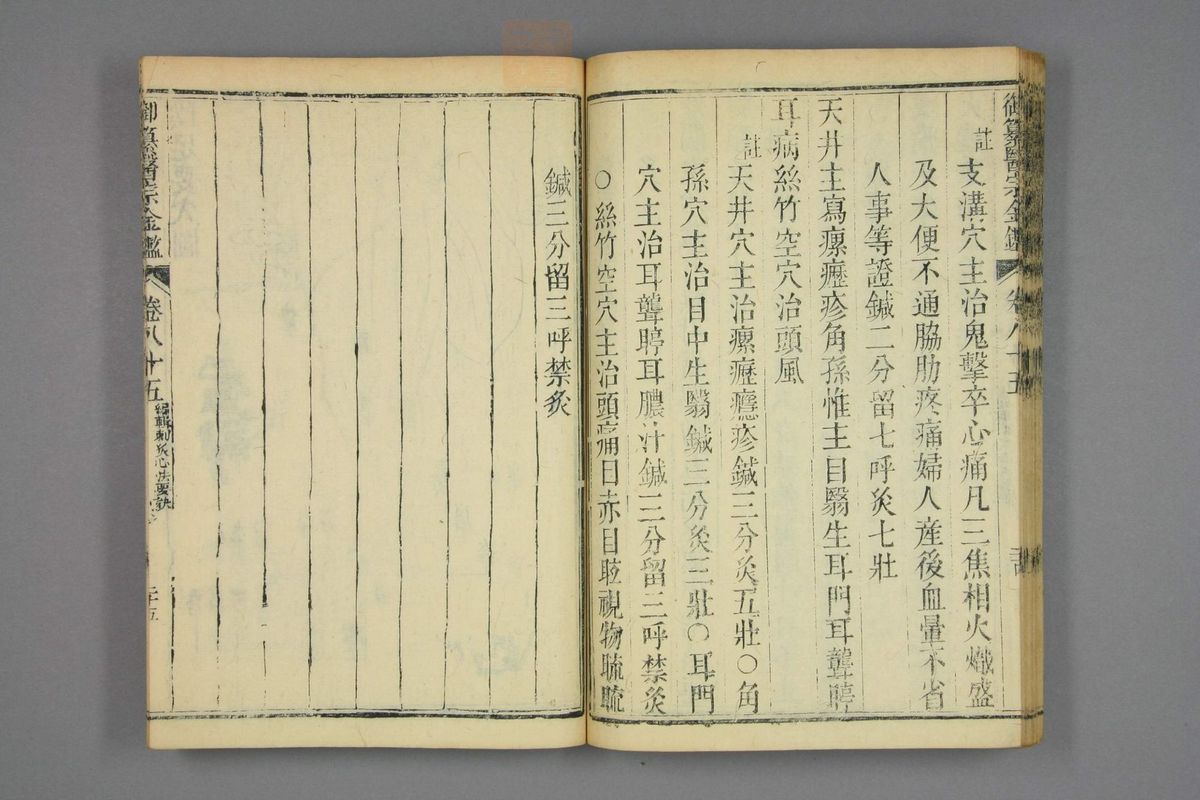 御纂醫宗金鑑
卷八十五
註支溝穴主治鬼擊卒心痛凡三焦相火熾盛
及大便不通脇肋疼痛婦人產後血暈不省
人事等證鍼二分留七呼灸七壯
天井主瀉瘰癧疹角孫惟主目翳生耳門耳聾聤
耳病絲竹空穴治頭風
註天井穴主治瘰癧癮疹鍼三分灸五壯○角
孫穴主治目中生翳鍼三分灸三壯○耳門
穴主治耳聾聤耳膿汁鍼三分留三呼禁灸
○絲竹空穴主治頭痛目赤目眩視物䀮䀮
鍼三分留三呼禁灸
御纂醫宗金鑑
卷八十五
編輯刺灸心法要訣
二十五